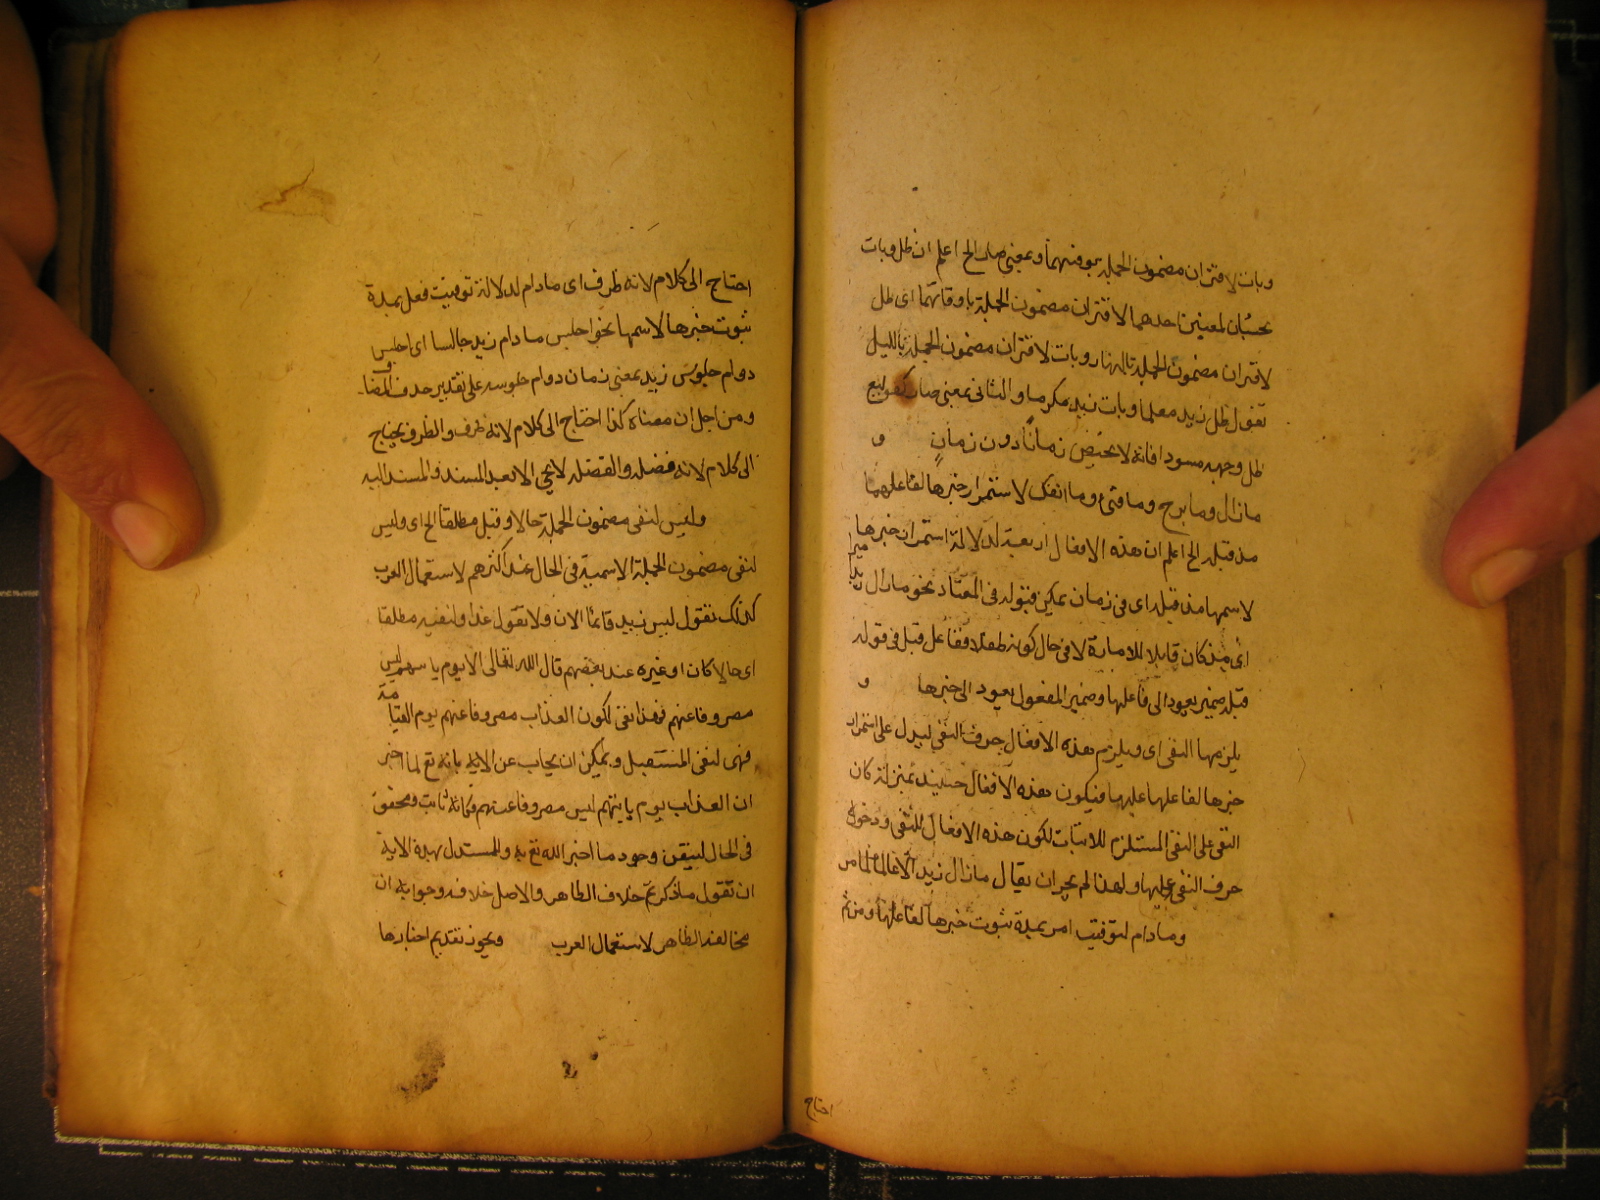 وبات لاقتران مضمون الجملة بوقتهما وبمعنى صار الخ اعلم ان ظل وبات
يجيئان لمعنيين احدهما لاقتران مضمون الجملة باوقاتهما اى ظل
لاقتران مضمون الجملة بالنهار وبات لاقتران مضمون الجملة بالليل
تقول ظل زيد معلما وبات زيد مكرما والثانى بمعنى صار كقوله تع
ظل وجهه مسودا فانه لا يختص زمانا دون زمان و
مازال وما برح وما فتئ وما انفك لاستمرار خبرها لفاعلها
مذ قبله الخ اعلم ان هذه الافعال اربعة لدلالة استمرار خبرها
لاسمها مذ قبله اى فى زمان يمكن قبوله فى المعتاد نحو مازال زيد اميرا
اى مذ كان قابلا للامارة لا فى حال كونه طفلا ففاعل قبل فى قوله
قبله ضمير يعود الى فاعلها وضمير المفعول يعود الى خبرها و
يلزمها النفى اى ويلزم هذه الافعال حرف النفى ليدل على استمرار
خبرها لفاعلها عليها فيكون هذه الافعال حينئذ بمنزلة كان
النفى على النفى المستلزم للاثبات لكون هذه الافعال للنفى ودخول
حرف النفى عليها ولهذا لم يجز ان يقال مازال زيد الا عالما لما مر
ومادام لتوقيت امر بمدة ثبوت خبرها لفاعلها ومن ثم
احتاج
احتاج الى كلام لانه ظرف اى مادام لدلالة توقيت فعل بمدة
ثبوت خبرها لاسمها نحو اجلس مادام زيد جالسا اى اجلس
دوام جلوس زيد بمعنى زمان دوام جلوسه على تقدير حذف المضاف
ومن اجل ان معناه كذا احتاج الى كلام لانه ظرف والظرف يحتاج
الى كلام لانه فضلة والفضلة لا يجئ الا بعد المسند والمسند اليه
وليس لنفى مضمون الجملة حالا وقيل مطلقا الخ اى وليس
لنفى مضمون الجملة الاسمية فى الحال عند اكثرهم لاستعمال العرب
كذلك تقول ليس زيد قائما الان ولا تقول غدا ولنفيه مطلقا
اى حالا كان او غيره عند بعضهم قال الله تعالى الا يوم ياتيهم ليس
مصروفا عنهم فهذا نفى لكون العذاب مصروفا عنهم يوم القيامة
فهى لنفى المستقبل ويمكن ان يجاب عن الاية بانه تع لما اخبر
ان العذاب يوم ياتيهم ليس مصروفا عنهم فكانه ثابت ومحقق
فى الحال لتيقن وجود ما اخبر الله تع به والمستدل بهذه الاية
ان تقول ما ذكرتم خلاف الظاهر والاصل خلافه وجوابه ان
مخالفة الظاهر لاستعمال العرب ويجوز تقديم اخبارها